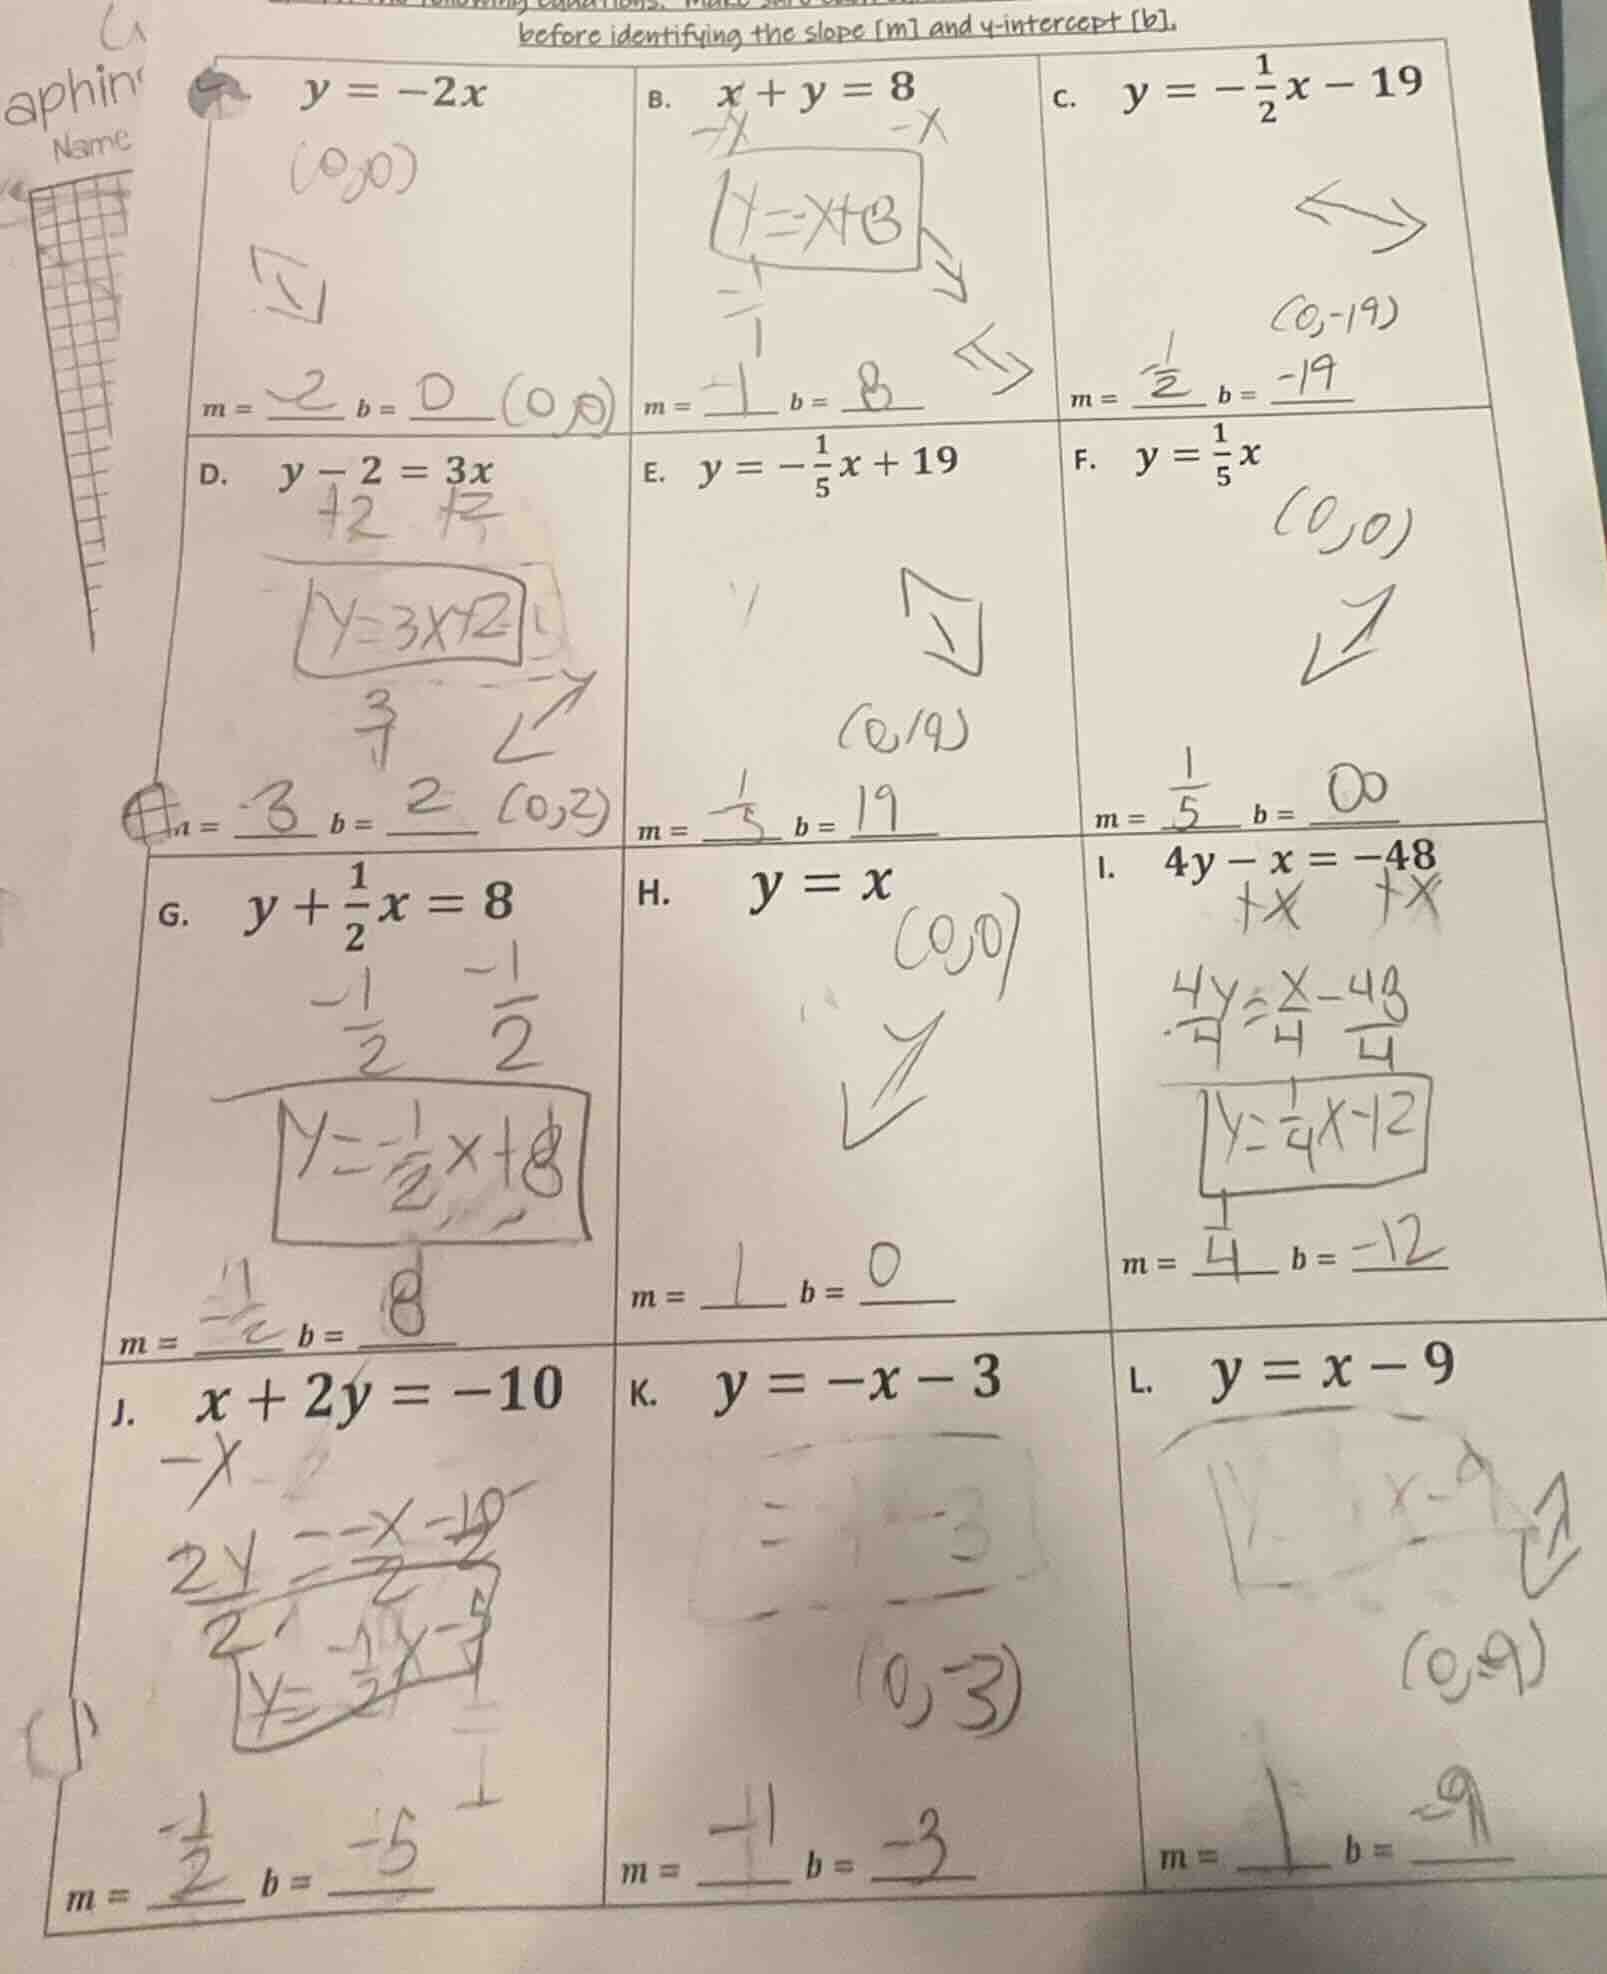 before identifying the slope [m] and y-intercept [b].
aphin
Name
y = −2x
(0,0)
m = -2 b = 0 (0,0)
B. x + y = 8
-x -x
y=-x+8
-1
1
m = -1 b = 8
C. y = −1/2x − 19
(0,-19)
m = -1/2 b = -19
D. y − 2 = 3x
+2 +2
y=3x+2
3/1
= 3 b = 2 (0,2)
E. y = −1/5x + 19
(0,19)
m = -1/5 b = 19
F. y = 1/5x
(0,0)
m = 1/5 b = 00
G. y + 1/2x = 8
-1/2 -1/2
y=-1/2x+8
m = -1/2 b = 8
H. y = x
(0,0)
m = 1 b = 0
I. 4y − x = −48
+x +x
4y/4=x/4-48/4
y=1/4x-12
m = 1/4 b = -12
J. x + 2y = −10
-x
2y/2=-x/2-10/2
y=-1/2x-5
m = -1/2 b = -5
K. y = −x − 3
= -3
(0,-3)
m = -1 b = -3
L. y = x − 9
y x-9
(0,-9)
m = 1 b = -9